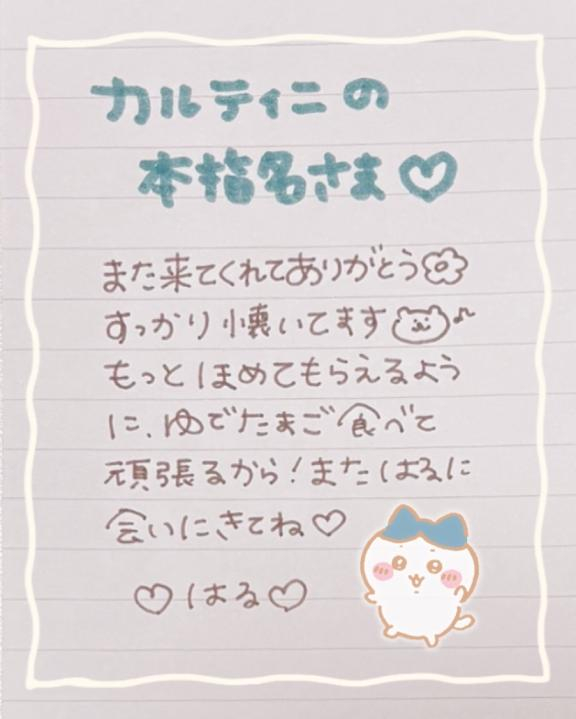 カルティニの
本指名さま♡
また来てくれてありがとう
すっかり懐いてます♪
もっとほめてもらえるよう
に、ゆでたまご食べて
頑張るから!またはるに
会いにきてね♡
♡はる♡